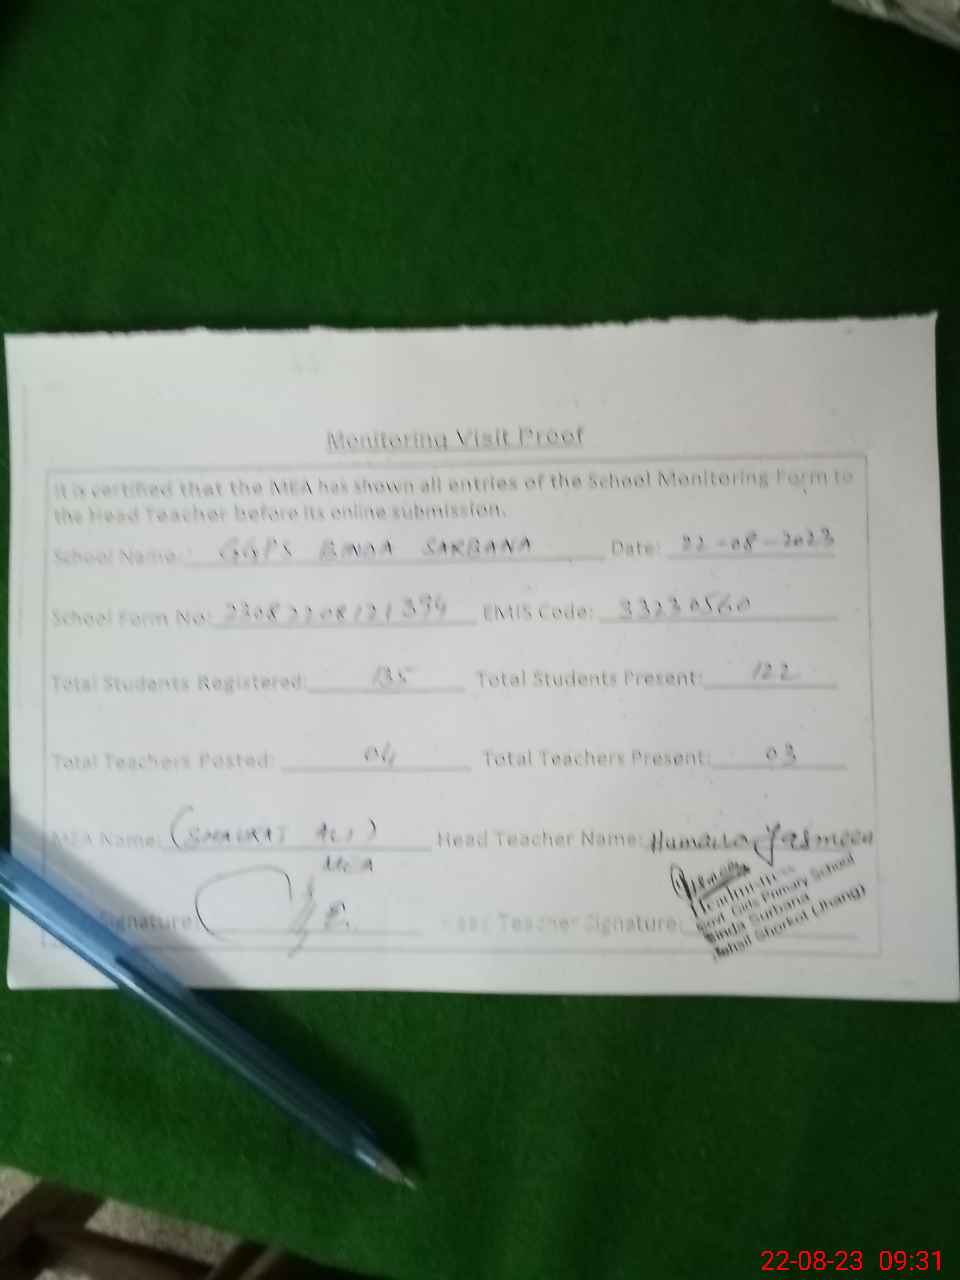 Monitoring Visit Proof
It is certified that the MEA has shown all entries of the School Monitoring Form to
the Head Teacher before its online submission.
School Name: GGPS BINDA SARBANA Date: 22-08-2023
School Form No: 23082208121394 EMIS Code: 33230560
Total Students Registered: 135 Total Students Present: 122
Total Teachers Posted: 04 Total Teachers Present: 03
MEA Name: (SHAUKAT ALI) Head Teacher Name: Humaira Yasmeen
MEA
Signature: Teacher Signature:
Headmistress
Govt. Girls Primary School
Binda Sarbana
Tehsil Shorkot (Jhang)
22-08-23 09:31